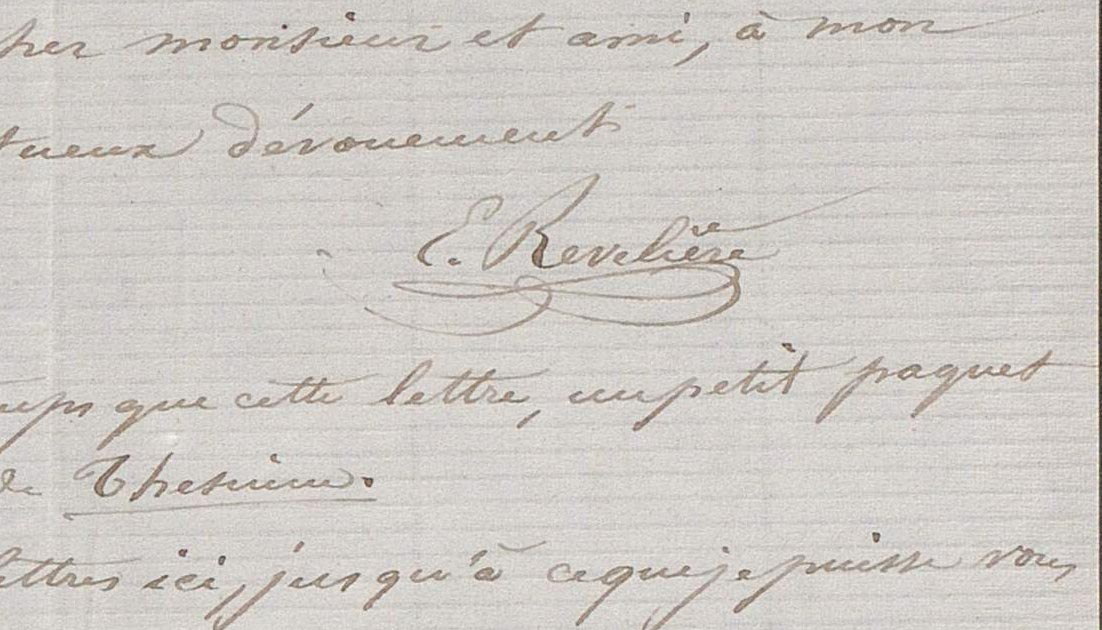 cher monsieur et ami, à mon
tueux dévouement
E. Revelière
mps que cette lettre, un petit paquet
de Thesium.
lettres ici, jusqu'à ce que je puisse vous